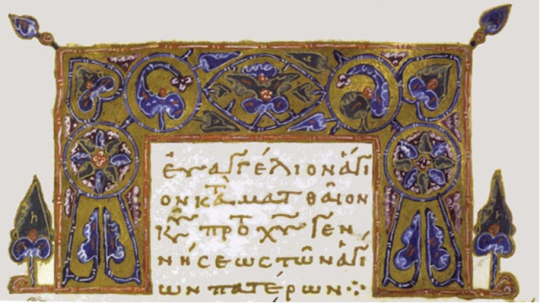 ἐυαγγέλιον ἅγι
ον κα^τ ματθαῖον
κυ πρὸ τ χυ γεν
νήσεως τῶν ἁγί
ων πατέρων ⁘